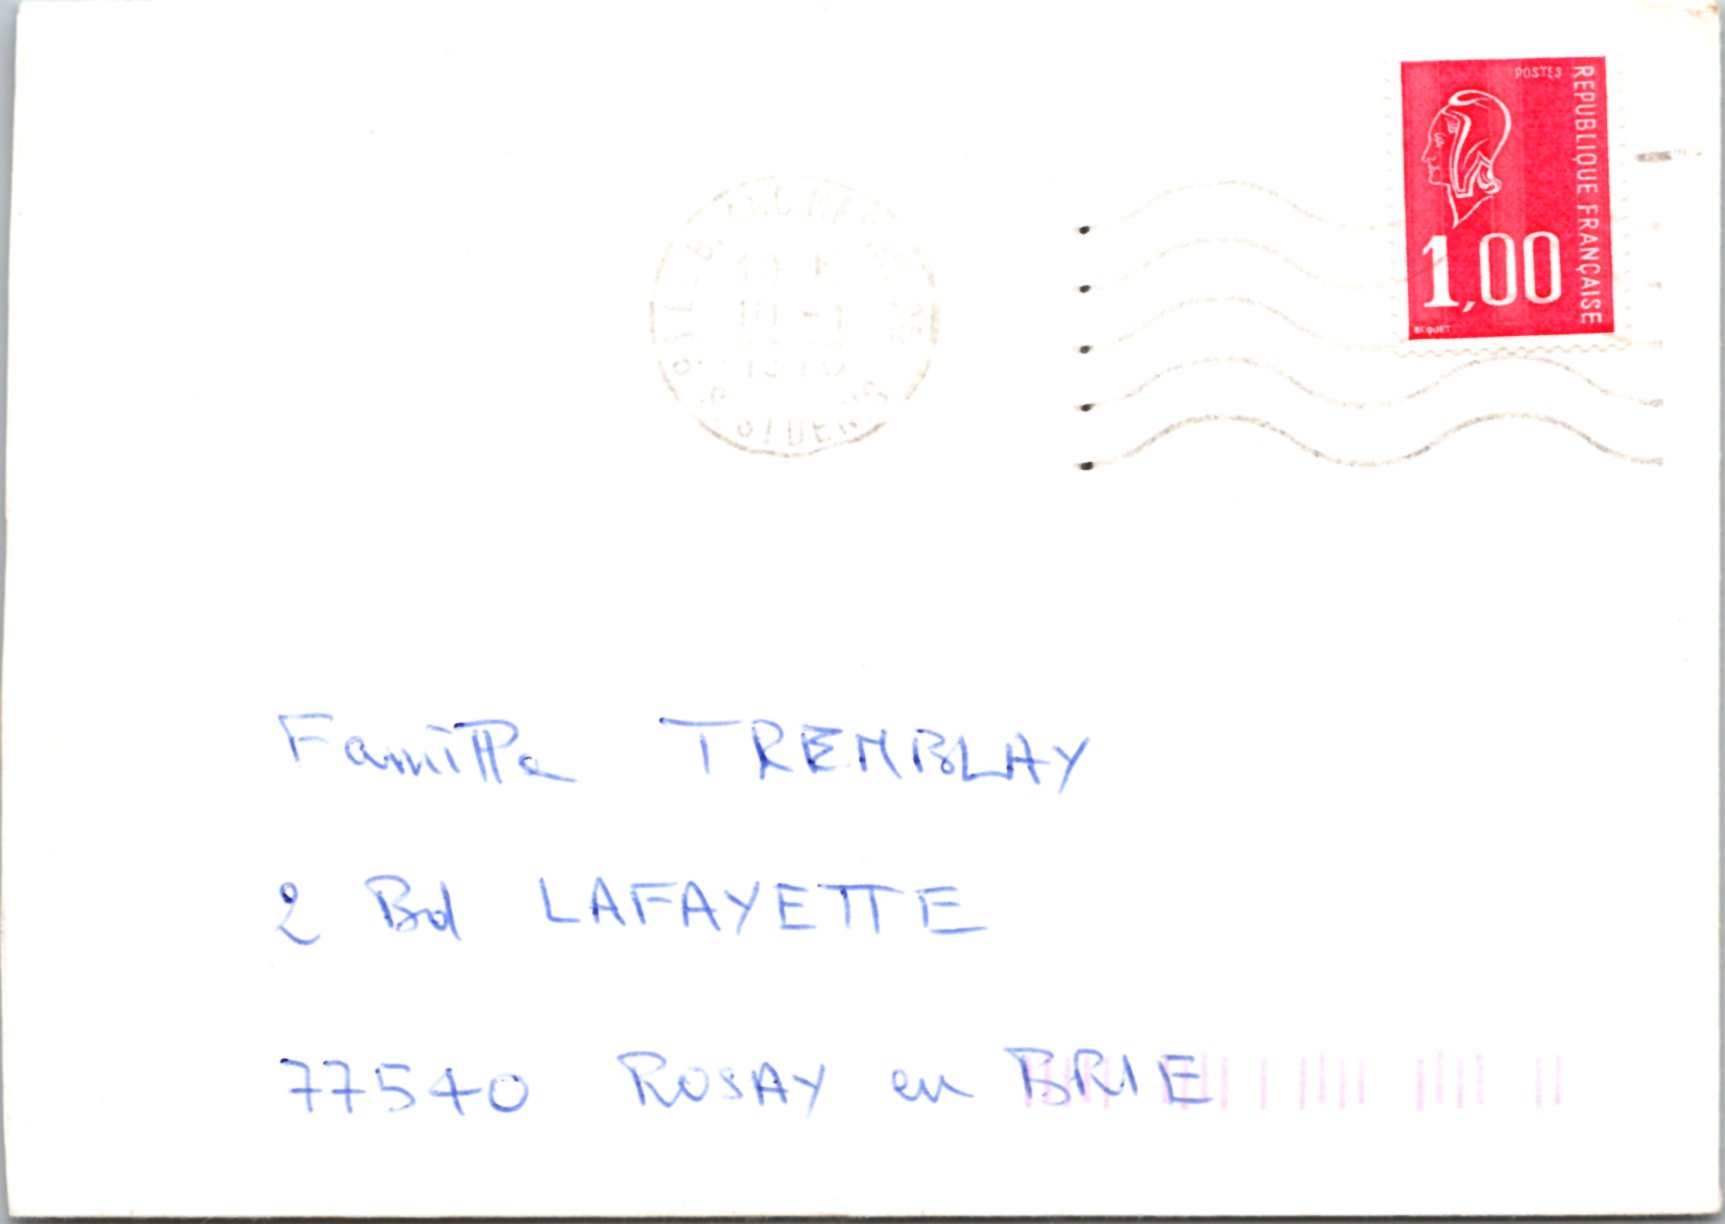 POSTES
REPUBLIQUE FRANÇAISE
1,00
BEQUET
Famille TREMBLAY
2 Bd LAFAYETTE
77540 ROSAY en BRIE